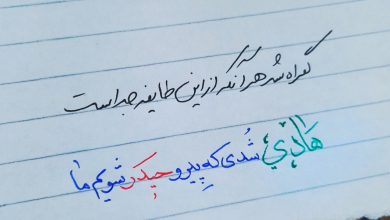 گمراه شد هر آنکه از این طایفه جداست
هادِیِ شُدی که پیِرو حِیدَر شویم ما